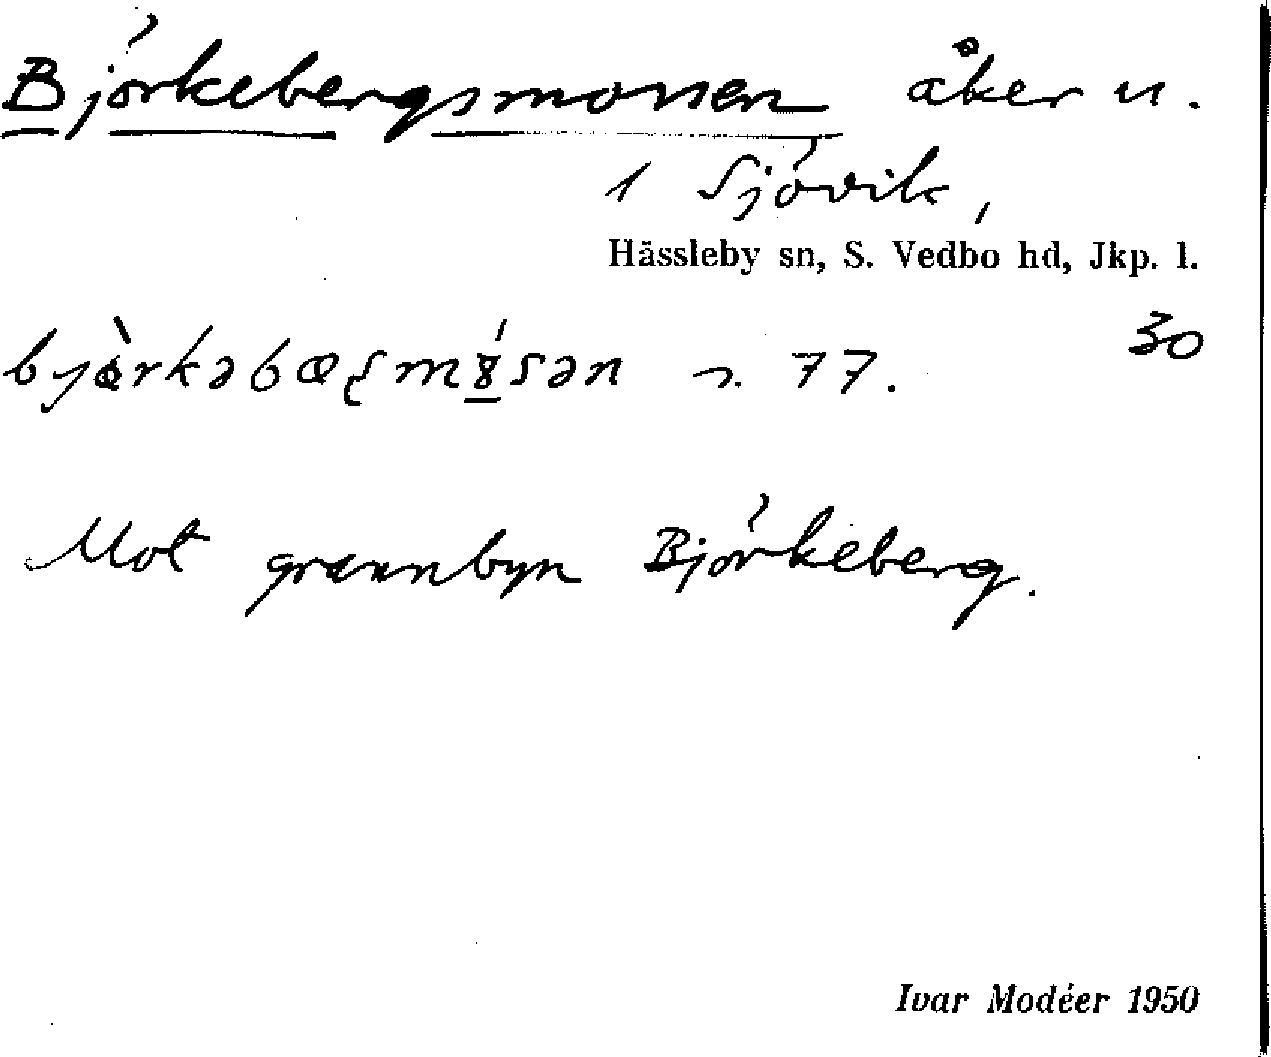 Björkebergsmossen åker u.
1 Sjövik,
Hässleby sn, S. Vedbo hd, Jkp. l.
30
n. 77.
Mot grannbyn Björkeberg.
Ivar Modéer 1950